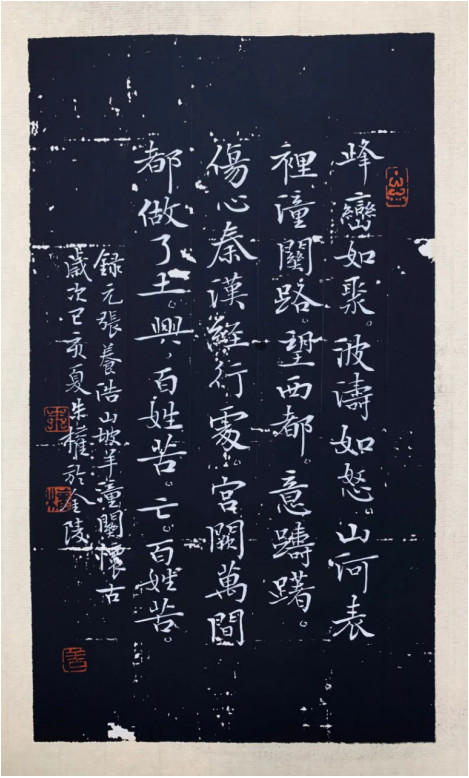 峰巒如聚。波濤如怒。山河表
裡潼關路。望西都。意躊躇。
傷心秦漢經行處。宮闕萬間
都做了土。興，百姓苦。亡。百姓苦。
錄元張養浩山坡羊潼關懷古
歲次己亥夏朱權於金陵